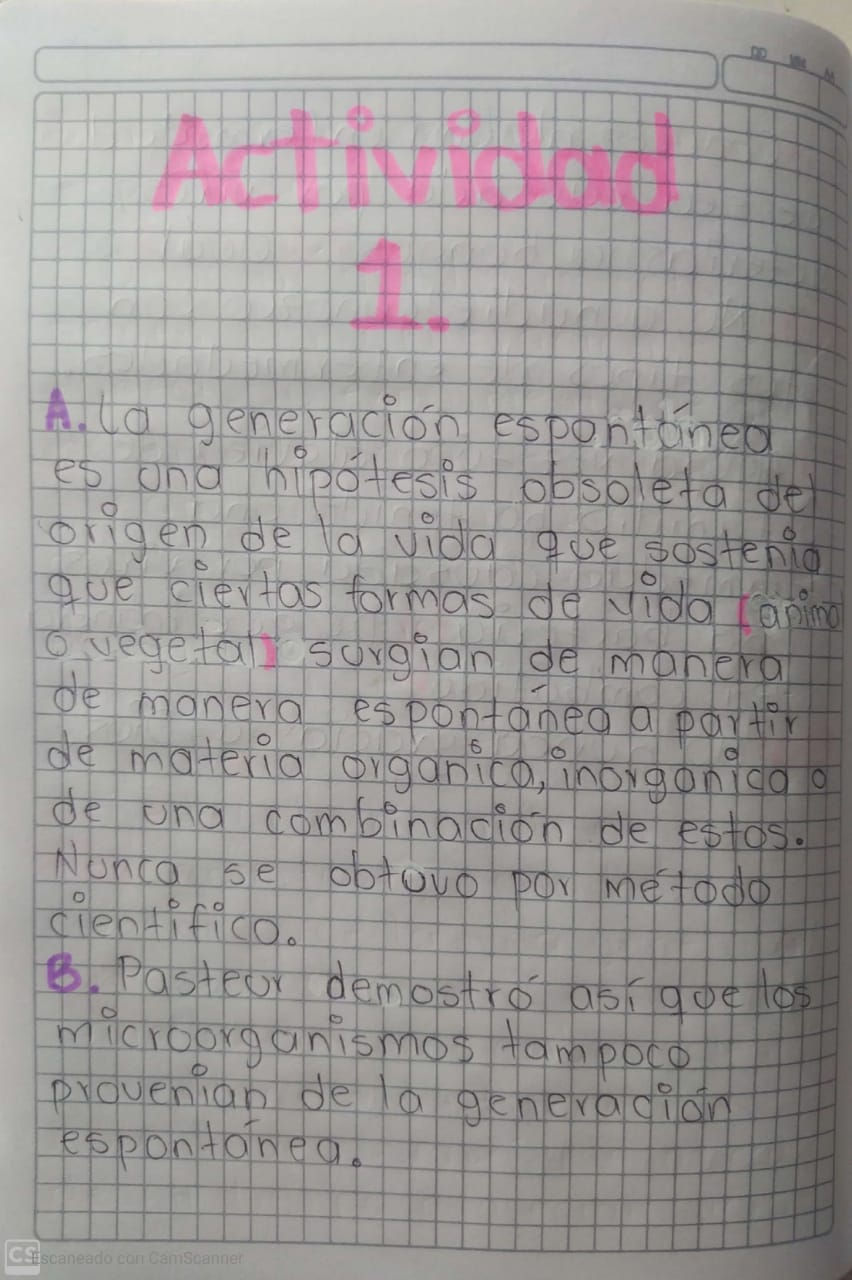 DD MM A
Actividad
1.
A. La generación espontánea
es una hipótesis obsoleta del
origen de la vida que sostenia
que ciertas formas de vida (anima
o vegetal) surgian de manera
de manera espontánea a partir
de materia organica, inorganica o
de una combinación de estos.
Nunca se obtuvo por método
cientifico.
B. Pasteur demostró así que los
microorganismos tampoco
provenian de la generación
espontánea.
CS Escaneado con CamScanner